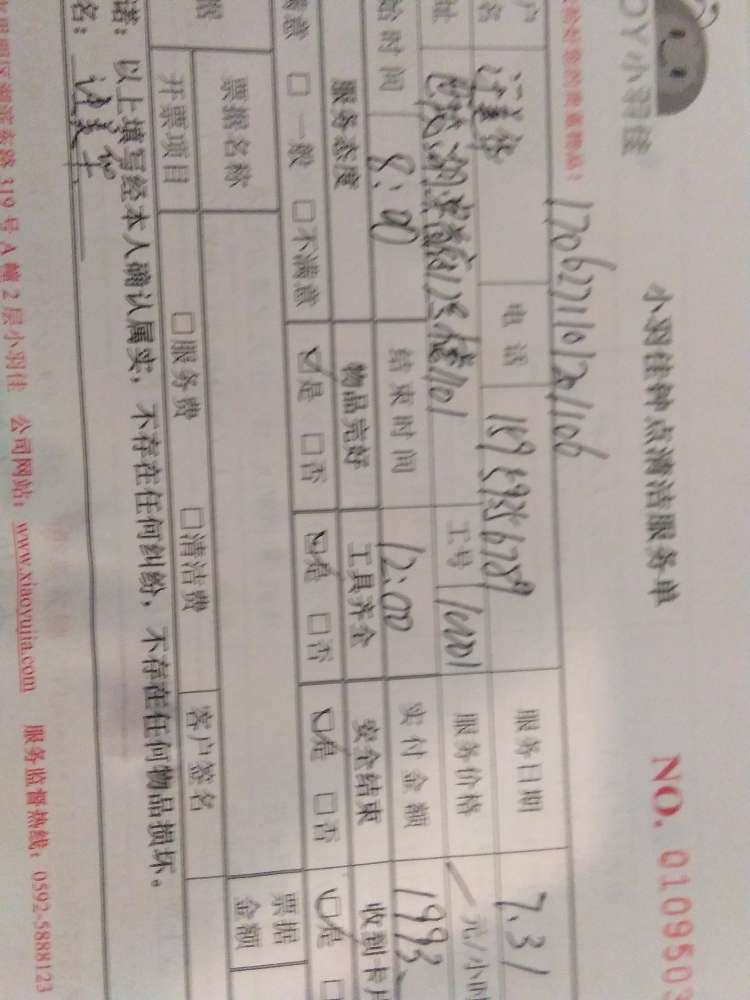 OY小羽佳
小羽佳钟点清洁服务单
NO. 010950
1706271101201106
电话 18959256789 服务日期 7.31
101 工号 10001 服务价格 元/小时
始时间 8:00 结束时间 12:00 实付金额 1993
服务态度 物品完好 工具齐全 安全结束 收到卡片
意 □ 一般 □不满意 ☑是 □否 ☑是 □否 ☑是 □否 ☑是
据 票据名称 票据金额
开票项目 □服务费 □清洁费 客户签名
诺：以上填写经本人确认属实，不存在任何纠纷，不存在任何物品损坏。
名：
319号A幢2层小羽佳 公司网站：www.xiaoyujia.com 服务监督热线：0592-5888123